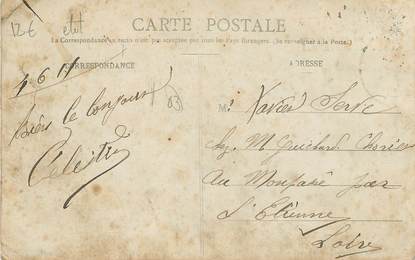 12 € etat
CARTE POSTALE
La Correspondance au recto n'est pas acceptée par tous les Pays étrangers. (Se renseigner à la Poste.)
CORRESPONDANCE
ADRESSE
4-6 11
le bonjour
(03)
Célestin
M. Xavier Serve
chez M Guichard
Au Monpaké par
St Etienne
Loire